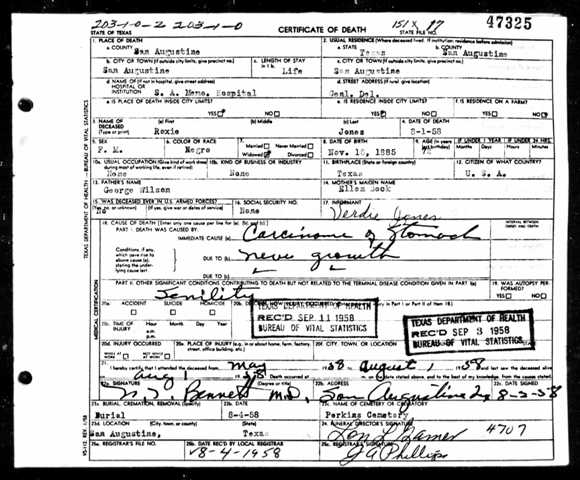 203-1-0-2 203-1-0
STATE OF TEXAS
CERTIFICATE OF DEATH
151X
STATE FILE NO.
47325
1. PLACE OF DEATH
a. COUNTY
San Augustine
2. USUAL RESIDENCE (Where deceased lived. If institution: residence before admission)
a. STATE
Texas
b. COUNTY
San Augustine
b. CITY OR TOWN (If outside city limits, give precinct no.)
San Augustine
c. LENGTH OF STAY
Life
c. CITY OR TOWN (If outside city limits, give precinct no.)
San Augustine
d. NAME OF (If not in hospital, give street address)
HOSPITAL OR
INSTITUTION
S. A. Memo. Hospital
d. STREET ADDRESS (If rural, give location)
Genl. Del.
e. IS PLACE OF DEATH INSIDE CITY LIMITS?
YES NO
e. IS RESIDENCE INSIDE CITY LIMITS?
YES NO
f. IS RESIDENCE ON A FARM?
YES NO
3. NAME OF
DECEASED
(Type or print)
(a) First
Roxie
(b) Middle
(c) Last
Jones
4. DATE OF DEATH
8-1-58
5. SEX
6. COLOR OR RACE
Negro
7. Married Never Married
Widowed Divorced
8. DATE OF BIRTH
1885
9. AGE
IF UNDER 1 YEAR
IF UNDER 24 HRS.
Months Days Hours
10a. USUAL OCCUPATION (Give kind of work done
during most of working life, even if retired)
None
10b. KIND OF BUSINESS OR INDUSTRY
None
11. BIRTHPLACE (State or foreign country)
Texas
12. CITIZEN OF WHAT COUNTRY?
U. S. A.
13. FATHER'S NAME
George Wilson
14. MOTHER'S MAIDEN NAME
Ellen
15. WAS DECEASED EVER IN U.S. ARMED FORCES?
(Yes, no, or unknown) (If yes, give war or dates of service)
No
16. SOCIAL SECURITY NO.
None
17. INFORMANT
Verdie Jones
18. CAUSE OF DEATH (Enter only one cause per line for (a), (b), and (c).)
PART I. DEATH WAS CAUSED BY:
IMMEDIATE CAUSE (a)
Carcinoma of Stomach
Conditions, if any,
which gave rise to
above cause (a),
stating the under-
lying cause last.
DUE TO (b)
new growth
DUE TO (c)
PART II. OTHER SIGNIFICANT CONDITIONS CONTRIBUTING TO DEATH BUT NOT RELATED TO THE TERMINAL DISEASE CONDITION GIVEN IN PART I(a)
Senility
19. WAS AUTOPSY PERFORMED?
YES NO
20a. ACCIDENT SUICIDE HOMICIDE
TEXAS DEPARTMENT OF HEALTH
REC'D SEP 11 1958
BUREAU OF VITAL STATISTICS
TEXAS DEPARTMENT OF HEALTH
REC'D SEP 3 1958
BUREAU OF VITAL STATISTICS
20c. TIME OF
INJURY
Hour Month Day Year
a.m.
p.m.
20d. INJURY OCCURRED
WHILE AT WORK
NOT WHILE AT WORK
20e. PLACE OF INJURY (e.g. in or about home, farm, factory,
street, office building, etc.)
20f. CITY, TOWN, OR LOCATION
COUNTY
STATE
21. I hereby certify that I attended the deceased from
August 1, 1958
22a. SIGNATURE
Bennett M.D.
(Degree or title)
22b. ADDRESS
San Augustine
22c. DATE SIGNED
8-2-58
23a. BURIAL, CREMATION, REMOVAL (Specify)
Burial
23b. DATE
8-4-58
23c. NAME OF CEMETERY OR CREMATORY
Perkins Cemetery
23d. LOCATION (City, town, or county) (State)
San Augustine, Texas
24. FUNERAL DIRECTOR'S SIGNATURE
4707
25a. REGISTRAR'S FILE NO.
25b. DATE REC'D BY LOCAL REGISTRAR
8-4-1958
25c. REGISTRAR'S SIGNATURE
G A Phillips
TEXAS DEPARTMENT OF HEALTH — BUREAU OF VITAL STATISTICS
MEDICAL CERTIFICATION